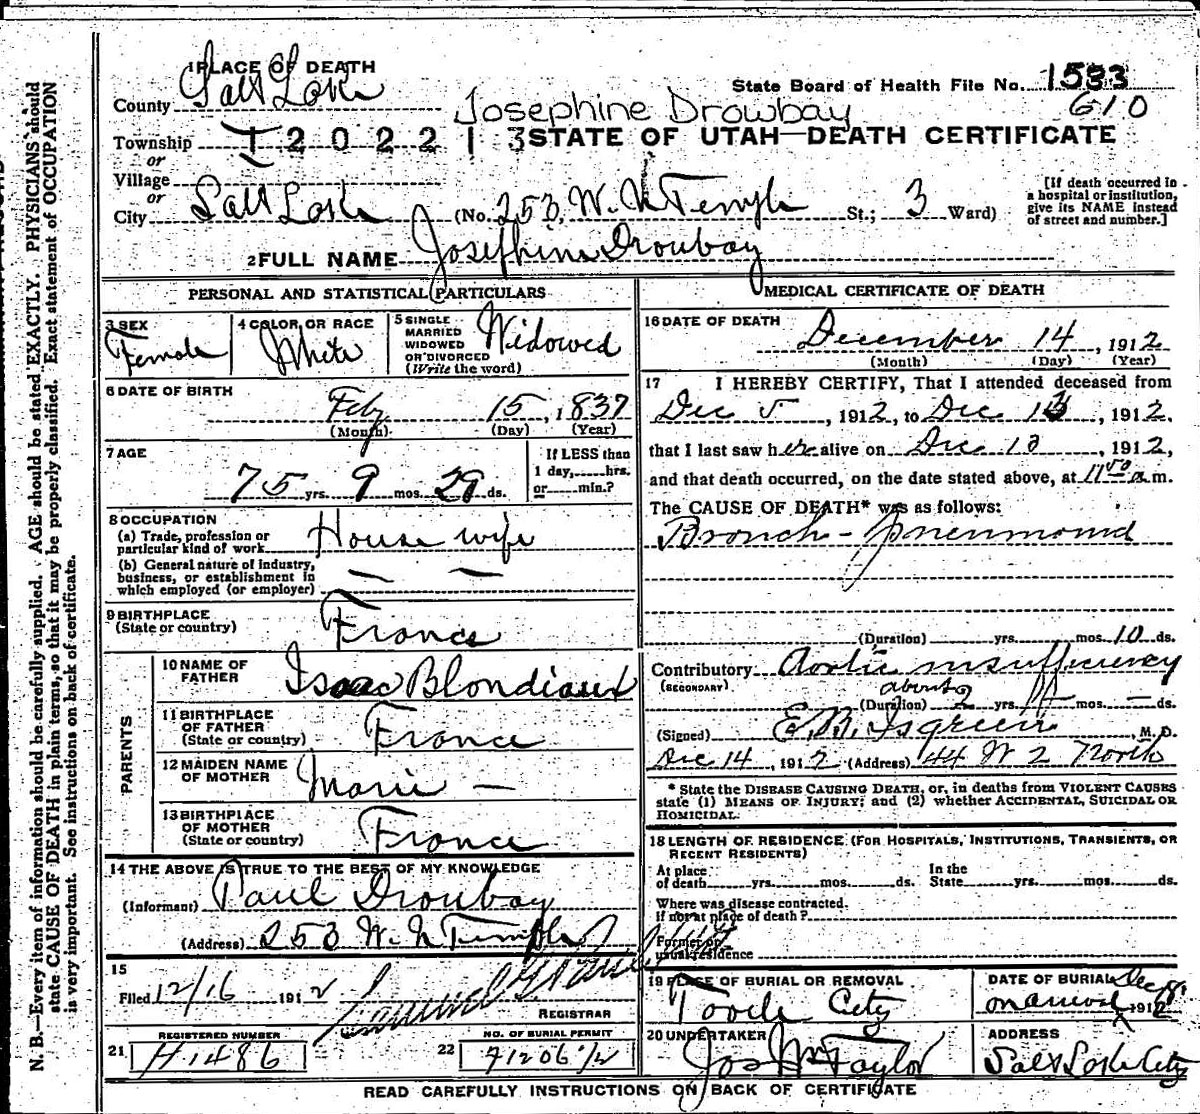 1 PLACE OF DEATH
County Salt Lake
State Board of Health File No. 1533
610
Josephine Drowbay
Township T 2 0 2 2 1 3 STATE OF UTAH—DEATH CERTIFICATE
or
Village
or
City Salt Lake (No. 253, W. N Temple St.; 3 Ward)
[If death occurred in a hospital or institution, give its NAME instead of street and number.]
2 FULL NAME Josephine Droubay
PERSONAL AND STATISTICAL PARTICULARS
3 SEX Female
4 COLOR OR RACE White
5 SINGLE MARRIED WIDOWED OR DIVORCED (Write the word) Widowed
6 DATE OF BIRTH
Feby 15, 1837
(Month) (Day) (Year)
7 AGE
75 yrs. 9 mos. 29 ds.
If LESS than 1 day, hrs. or min.?
8 OCCUPATION
(a) Trade, profession or particular kind of work House wife
(b) General nature of industry, business, or establishment in which employed (or employer) — —
9 BIRTHPLACE (State or country) France
PARENTS
10 NAME OF FATHER Isaac Blondiaux
11 BIRTHPLACE OF FATHER (State or country) France
12 MAIDEN NAME OF MOTHER Marie —
13 BIRTHPLACE OF MOTHER (State or country) France
14 THE ABOVE IS TRUE TO THE BEST OF MY KNOWLEDGE
(Informant) Paul Droubay
(Address) 253 W. N Temple
15
Filed 12/16 1912
REGISTRAR
REGISTERED NUMBER
21 H1486
NO. OF BURIAL PERMIT
22 91206 1/2
MEDICAL CERTIFICATE OF DEATH
16 DATE OF DEATH
December 14, 1912
(Month) (Day) (Year)
17 I HEREBY CERTIFY, That I attended deceased from
Dec 5, 1912, to Dec 13, 1912,
that I last saw her alive on Dec 13, 1912,
and that death occurred, on the date stated above, at 11 50 a m.
The CAUSE OF DEATH* was as follows:
Broncho-pneumonia
(Duration) yrs. mos. 10 ds.
Contributory Aortic insufficiency
(SECONDARY)
about 2
(Duration) yrs. mos. — ds.
(Signed) E. B. Isgreen M. D.
Dec 14, 1912 (Address) 44 W 2 North
* State the DISEASE CAUSING DEATH, or, in deaths from VIOLENT CAUSES state (1) MEANS OF INJURY; and (2) whether ACCIDENTAL, SUICIDAL OR HOMICIDAL.
18 LENGTH OF RESIDENCE (FOR HOSPITALS, INSTITUTIONS, TRANSIENTS, OR RECENT RESIDENTS)
At place of death yrs. mos. ds. In the State yrs. mos. ds.
Where was disease contracted, if not at place of death?
Former or usual residence
19 PLACE OF BURIAL OR REMOVAL
Tooele City
DATE OF BURIAL
1912
20 UNDERTAKER
Jos Wm Taylor
ADDRESS
Salt Lake City
READ CAREFULLY INSTRUCTIONS ON BACK OF CERTIFICATE
N. B.—Every item of information should be carefully supplied. AGE should be stated EXACTLY. PHYSICIANS should
state CAUSE OF DEATH in plain terms, so that it may be properly classified. Exact statement of OCCUPATION
is very important. See instructions on back of certificate.